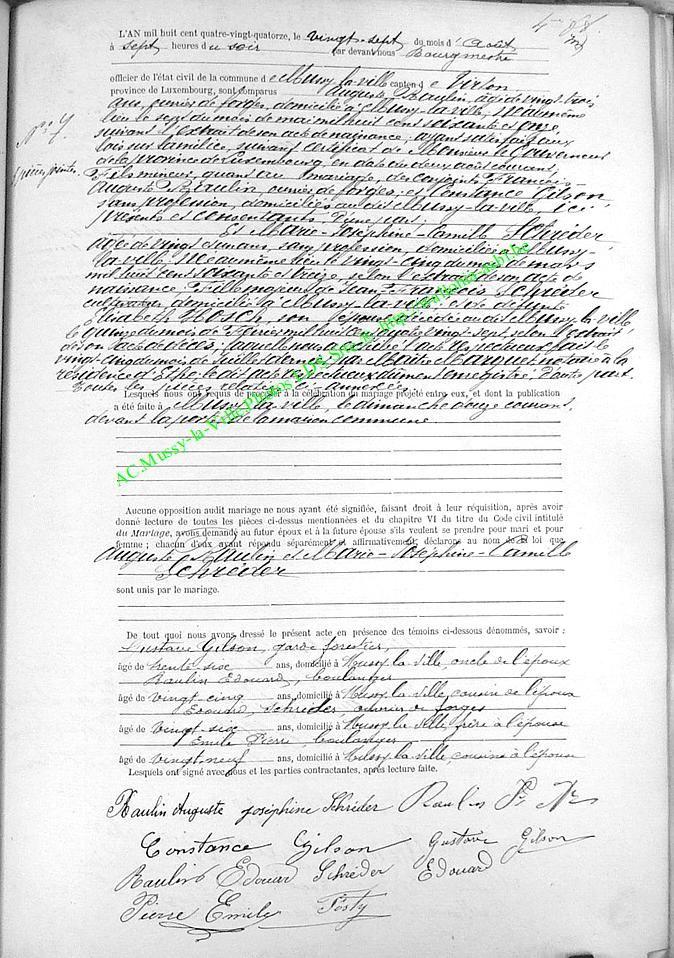 L'AN mil huit cent quatre-vingt-quatorze, le vingt-sept du mois d'Août
à sept heures du soir par devant nous Bourgmestre
officier de l'état civil de la commune de Mussy-la-ville canton de Virton
province de Luxembourg, sont comparus Auguste Raulin, âgé de vingt trois
N° 7
ans, ouvrier de forges, domicilié à Mussy-la-ville, né au même
lieu le seize du mois de mai mil huit cent soixante et onze,
suivant l'extrait de son acte de naissance, ayant satisfait aux
lois sur la milice, suivant certificat de Monsieur le Gouverneur
de la province de Luxembourg, en date du deux août courant;
Fils mineur, quant au mariage, des conjoints François-
Auguste Raulin, ouvrier de forges, et Constance Gilson,
sans profession, domiciliés au dit Mussy-la-ville, ici
présents et consentants d'une part.
Et Marie-Joséphine-Camille Schréder
âgée de vingt et un ans, sans profession, domiciliée à Mussy-
la-ville née au même lieu le vingt-cinq du mois de mars
mil huit cent soixante et treize, selon l'extrait de son acte de
naissance. Fille majeure de Jean François Schréder
cultivateur domicilié à Mussy-la-ville et de défunte
Elisabeth Hosch, son épouse décédée au dit Mussy-la-ville
le quinze du mois de Février mil huit cent quatre vingt sept selon l'extrait
de son acte de décès, laquelle nous a
vingt-cinq du mois de juillet dernier par Maître notaire à la
résidence d'Ethe le dit acte dûment enregistré. D'autre part.
Toutes les pièces relatées ci-annexées
Lesquels nous ont requis de procéder à la célébration du mariage projeté entre eux, et dont la publication
a été faite à Mussy-la-ville, le dimanche douze courant,
devant la porte de la maison commune
AC.Mussy-la-Ville Photos EDS Site
Aucune opposition audit mariage ne nous ayant été signifiée, faisant droit à leur réquisition, après avoir
donné lecture de toutes les pièces ci-dessus mentionnées et du chapitre VI du titre du Code civil intitulé
du Mariage, avons demandé au futur époux et à la future épouse s'ils veulent se prendre pour mari et pour
femme ; chacun d'eux ayant répondu séparément et affirmativement, déclarons au nom de la loi que
Auguste Raulin et Marie-Joséphine-Camille
Schréder
sont unis par le mariage.
De tout quoi nous avons dressé le présent acte en présence des témoins ci-dessous dénommés, savoir :
Gustave Gilson, garde forestier,
âgé de trente six ans, domicilié à Mussy-la-ville, oncle de l'époux
Raulin Edouard, boulanger
âgé de vingt-cinq ans, domicilié à Mussy-la-ville, cousin de l'époux
Edouard Schréder, ouvrier de forges
âgé de vingt-six ans, domicilié à Mussy-la-ville, frère à l'épouse
Emile Pierre, boulanger
âgé de vingt neuf ans, domicilié à Mussy-la-ville, cousin à l'épouse
Lesquels ont signé avec nous et les parties contractantes, après lecture faite.
Raulin Auguste Joséphine Schréder Raulin
Constance Gilson Gustave Gilson
Raulin Edouard Schréder Edouard
Pierre Emile Fosty